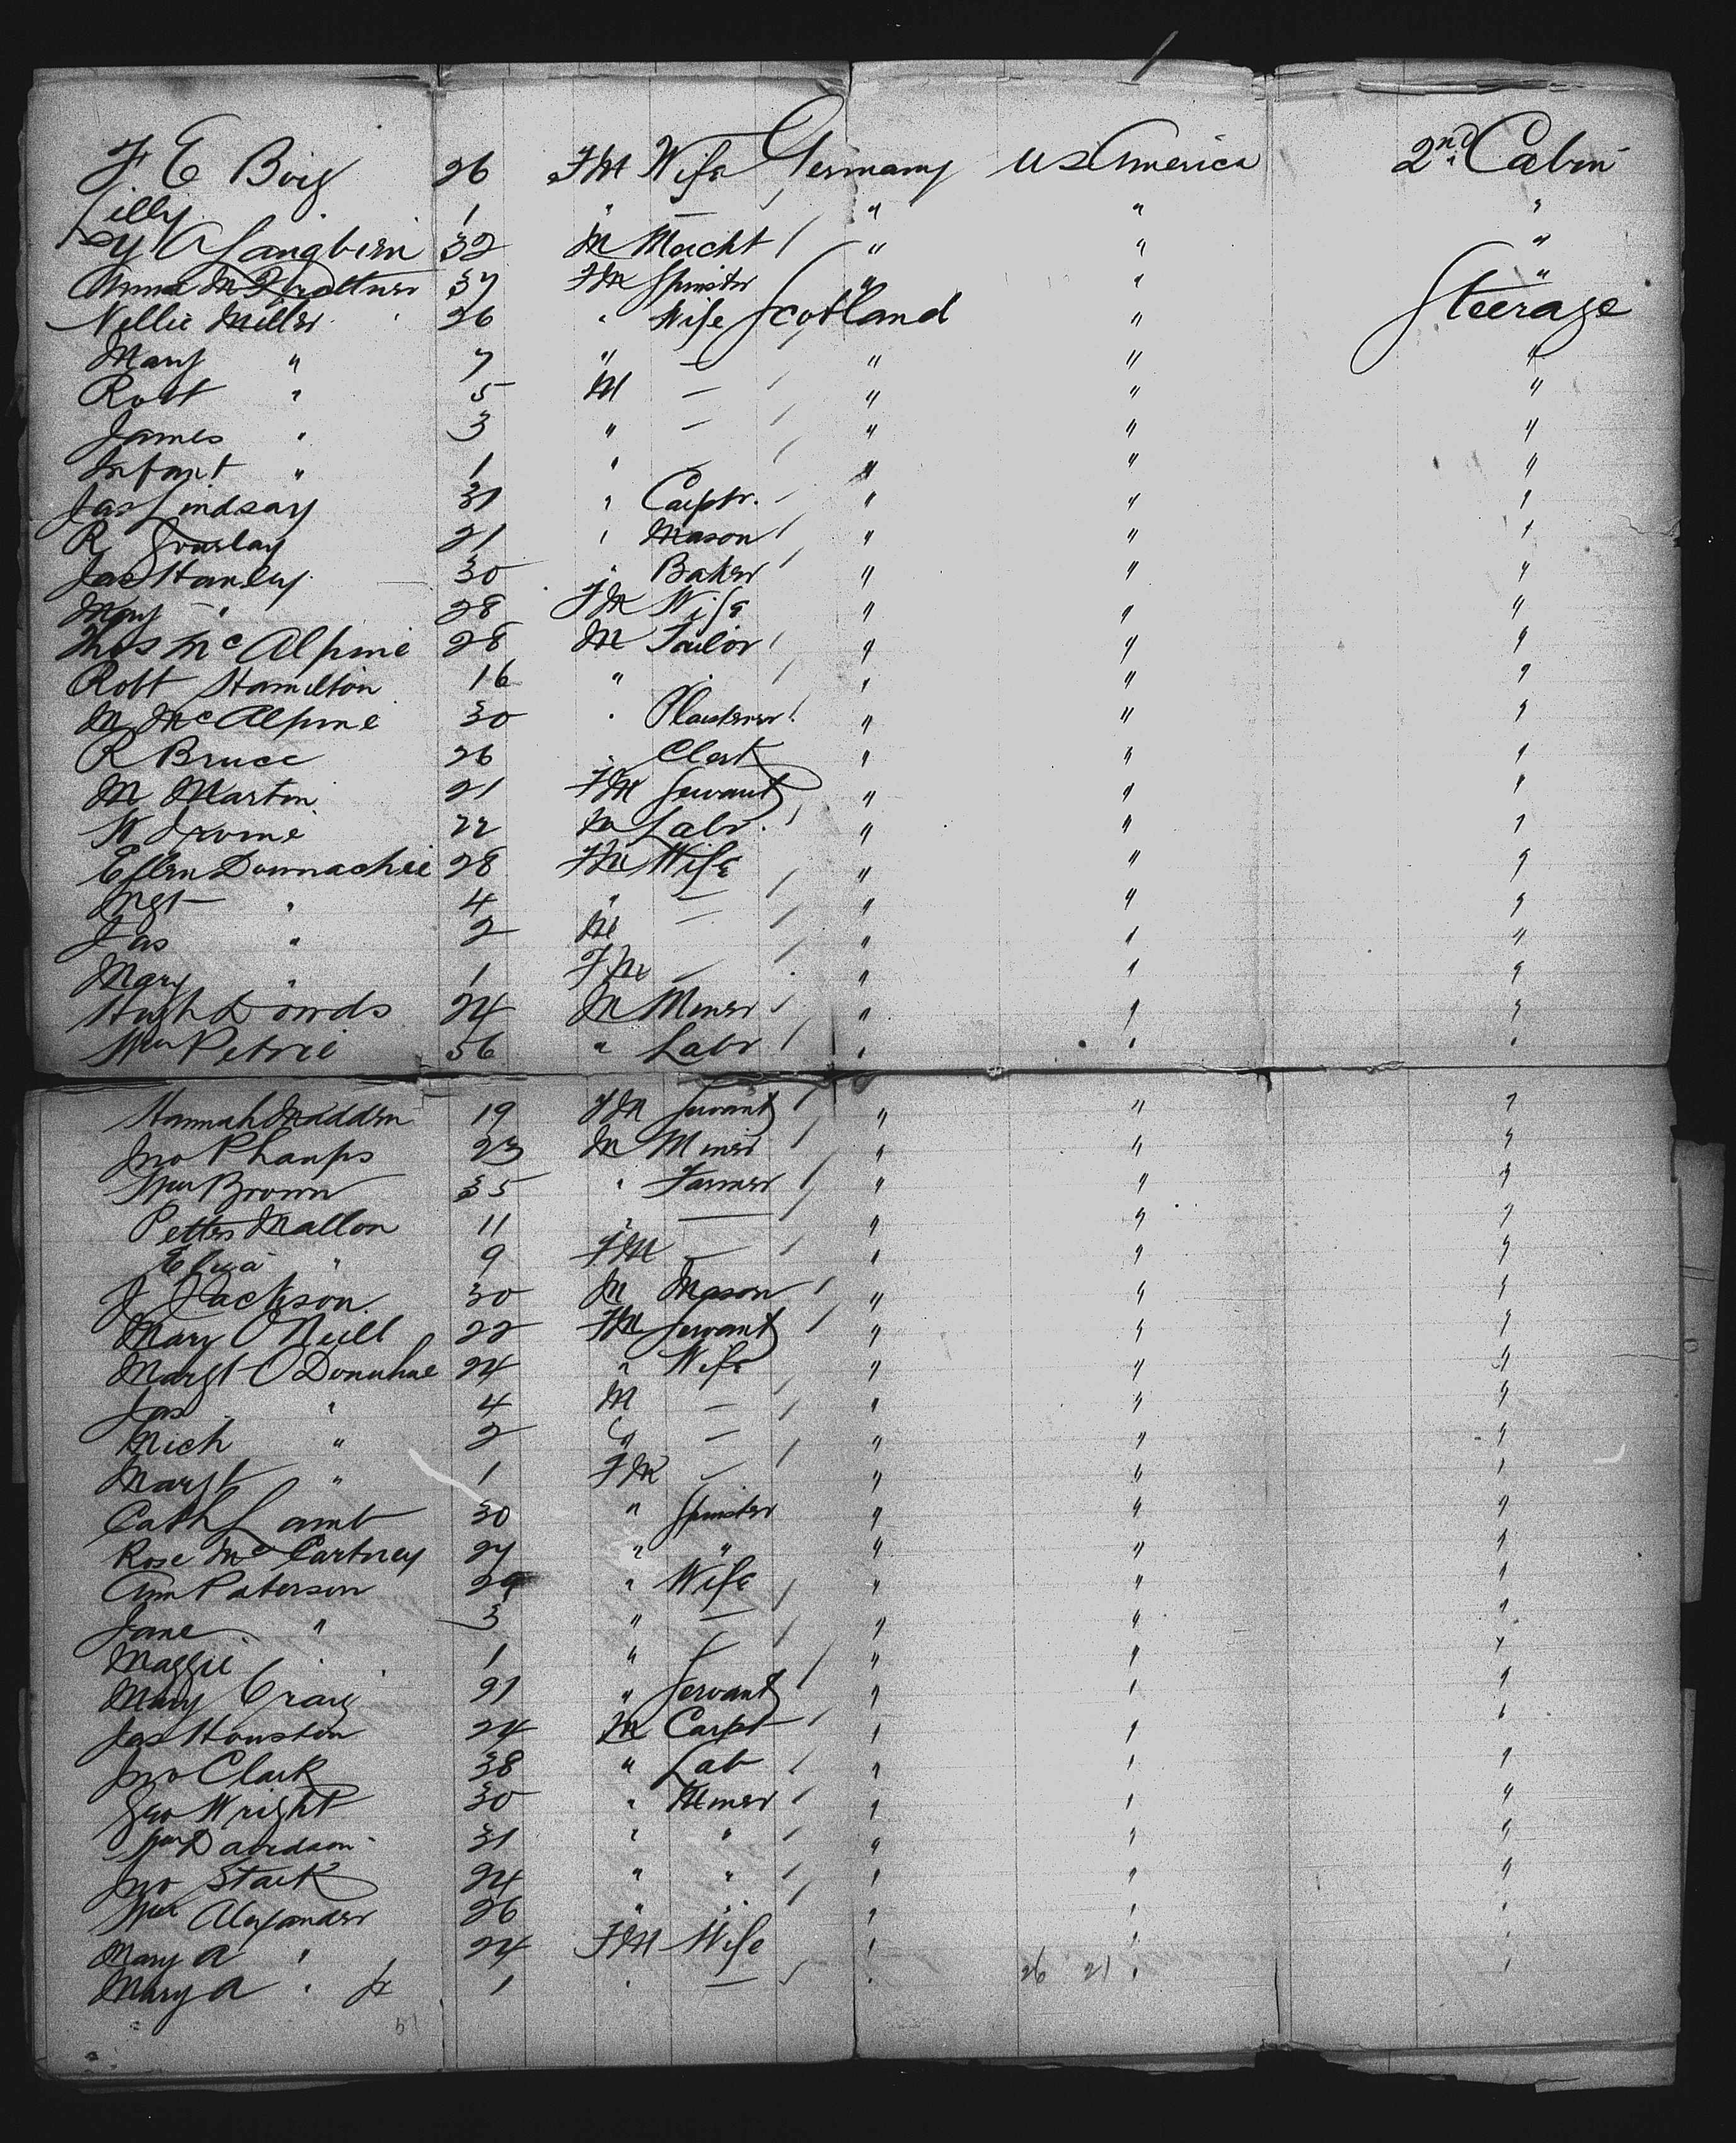 F E Boig 26 FM Wife Germany US America 2nd Cabin
Lilly 1 " — " " "
A Langbein 32 M Mercht " " "
Anna M 37 FM Spinster " " "
Nellie Miller 26 " Wife Scotland " Steerage
Mary " 7 " — " " "
Robt " 5 M — " " "
James " 3 " — " " "
Infant " 1 " — " " "
Jas Lindsay 31 " Carptr. " " "
R Gourlay 21 " Mason " " "
Jas Hanley 30 " Baker " " "
Mary " 28 FM Wife " " "
Thos McAlpine 28 M Tailor " " "
Robt Hamilton 16 " " " " "
M McAlpine 30 " Plasterer " " "
R Bruce 26 " Clerk " " "
M Martin 21 FM Servant " " "
W Irvine 22 M Labr. " " "
Ellen Dounachie 28 FM Wife " " "
Mgt " 4 " — " " "
Jas " 2 M — " " "
Mary " 1 FM — " " "
Hugh Dowds 24 M Miner " " "
Wm Petrie 56 " Labr " " "
Hannah Madden 19 FM Servant " " "
Jno Phaups 23 M Miner " " "
Wm Brown 35 " Farmer " " "
Petter Mallon 11 " — " " "
Eliza " 9 FM — " " "
J Jackson 30 M Mason " " "
Mary O'Neill 22 FM Servant " " "
Margt O'Donuhue 24 " Wife " " "
Jas " 4 M — " " "
Mich " 2 " — " " "
Margt " 1 FM — " " "
Cath Lamb 30 " Spinster " " "
Rose McCartney 27 " " " " "
Ann Paterson 29 " Wife " " "
Jane " 3 " — " " "
Maggie " 1 " — " " "
Mary Craig 21 " Servant " " "
Jas Houston 24 M Carpt " " "
Jno Clark 38 " Lab " " "
Geo Wright 30 " Miner " " "
Wm Davidson 31 " " " " "
Jno Stark 24 " " " " "
Wm Alexander 26 " " " " "
Mary A " 24 FM Wife " " "
Mary A " Jr 1 " — " 26 21 " "
51